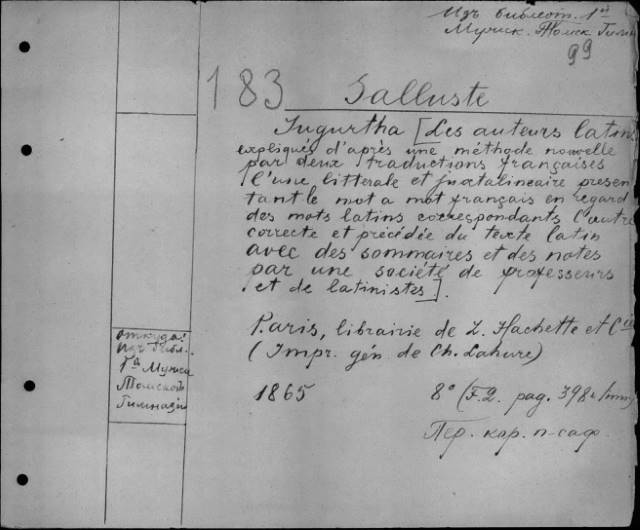 Изъ библiот. 1ой
Мужск. Томск. Гимн
99
183 Salluste
Jugurtha [Les auteurs latins
expliqués d'après une méthode nouvelle
par deux traductions françaises
l'une litterale et juxtalineaire presen
tant le mot a mot français en regard
des mots latins correspondants l'autre
correcte et précédée du texte latin
avec des sommaires et des notes
par une société de professeurs
et de latinistes].
Paris, librairie de L. Hachette et Cie
(Impr. gén. de Ch. Lahure)
1865 8° (F.2. pag. 398
Пер. кор. п-саф.
откуда:
Изъ библ.
1й Мужск
Томской
Гимназiи